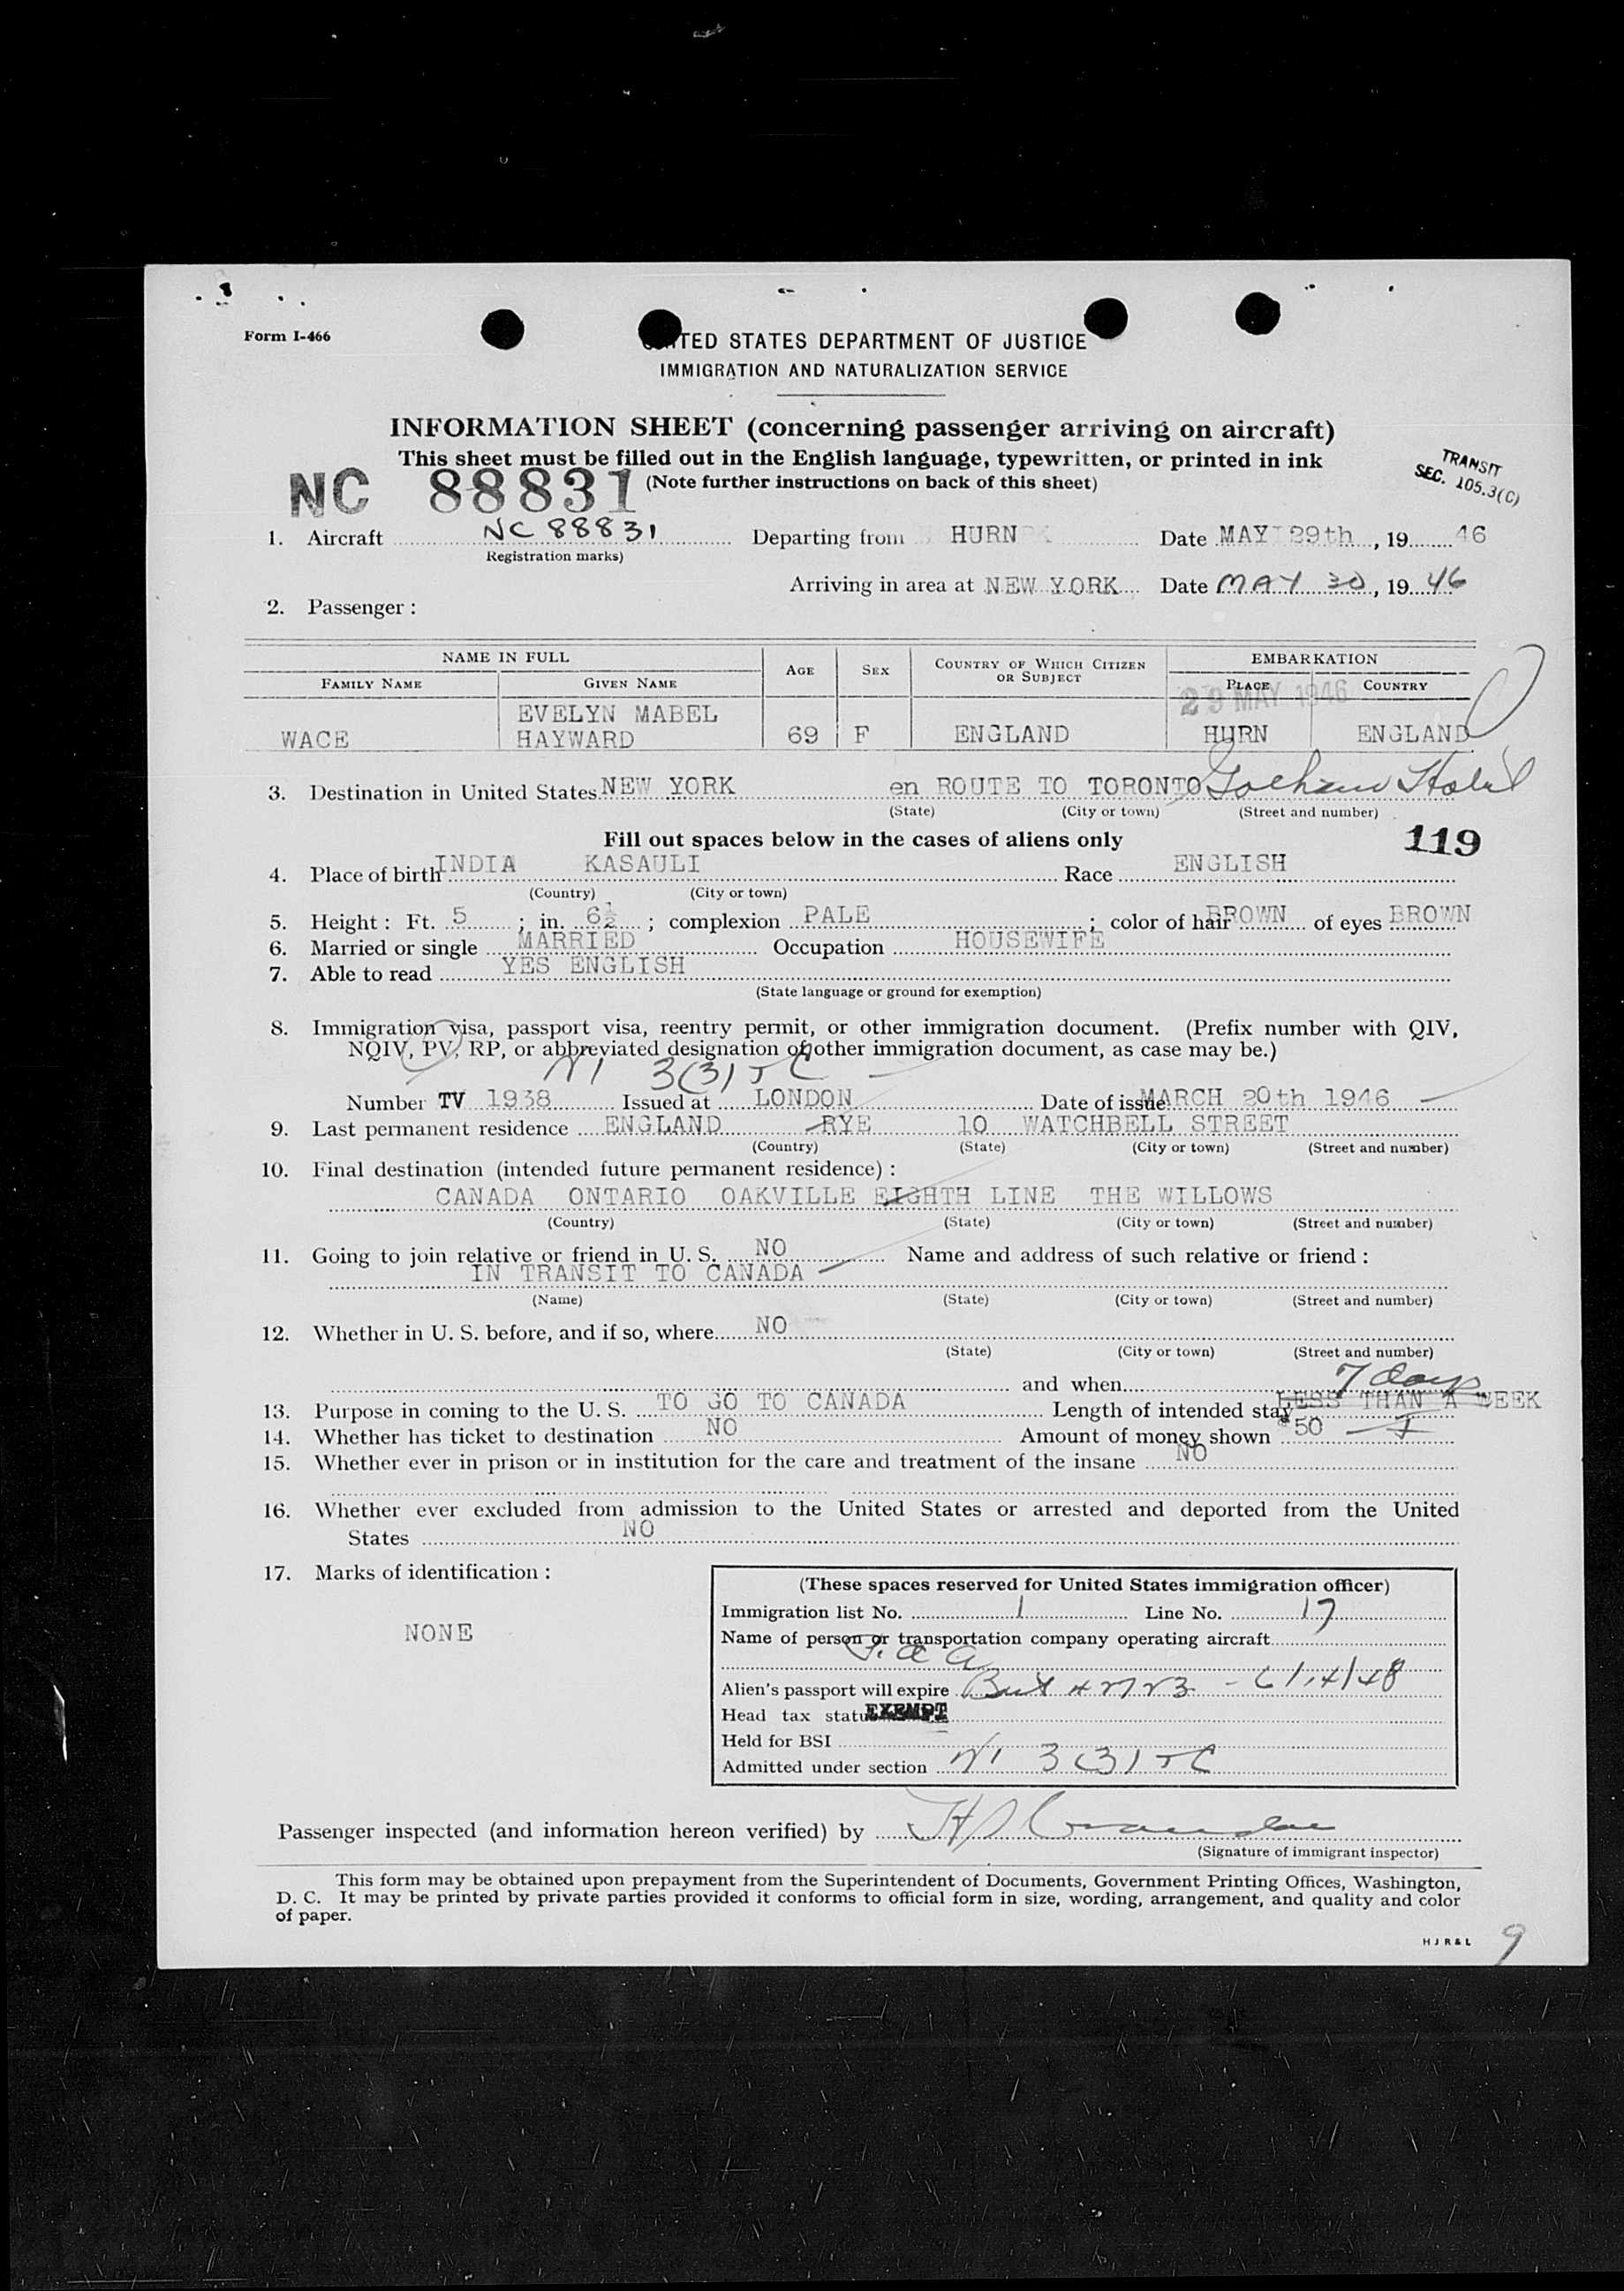 Form I-466
UNITED STATES DEPARTMENT OF JUSTICE
IMMIGRATION AND NATURALIZATION SERVICE
INFORMATION SHEET (concerning passenger arriving on aircraft)
This sheet must be filled out in the English language, typewritten, or printed in ink
(Note further instructions on back of this sheet)
NC 88831
TRANSIT
SEC. 105.3(C)
1. Aircraft NC 88831 Departing from HURN Date MAY 29th, 1946
(Registration marks)
Arriving in area at NEW YORK Date MAY 30, 1946
2. Passenger:
NAME IN FULL AGE SEX COUNTRY OF WHICH CITIZEN OR SUBJECT EMBARKATION
FAMILY NAME GIVEN NAME PLACE COUNTRY
29 MAY 1946
EVELYN MABEL
WACE HAYWARD 69 F ENGLAND HURN ENGLAND
3. Destination in United States NEW YORK en ROUTE TO TORONTO Gotham Hotel
(State) (City or town) (Street and number)
Fill out spaces below in the cases of aliens only
119
4. Place of birth INDIA KASAULI Race ENGLISH
(Country) (City or town)
5. Height: Ft. 5; in. 6½; complexion PALE; color of hair BROWN of eyes BROWN
6. Married or single MARRIED Occupation HOUSEWIFE
7. Able to read YES ENGLISH
(State language or ground for exemption)
8. Immigration visa, passport visa, reentry permit, or other immigration document. (Prefix number with QIV,
NQIV, PV, RP, or abbreviated designation of other immigration document, as case may be.)
3(3)
Number TV 1938 Issued at LONDON Date of issue MARCH 20th 1946
9. Last permanent residence ENGLAND RYE 10 WATCHBELL STREET
(Country) (State) (City or town) (Street and number)
10. Final destination (intended future permanent residence):
CANADA ONTARIO OAKVILLE EIGHTH LINE THE WILLOWS
(Country) (State) (City or town) (Street and number)
11. Going to join relative or friend in U. S. NO Name and address of such relative or friend:
IN TRANSIT TO CANADA
(Name) (State) (City or town) (Street and number)
12. Whether in U. S. before, and if so, where NO
(State) (City or town) (Street and number)
and when
7 days
13. Purpose in coming to the U. S. TO GO TO CANADA Length of intended stay LESS THAN A WEEK
14. Whether has ticket to destination NO Amount of money shown $50
15. Whether ever in prison or in institution for the care and treatment of the insane NO
16. Whether ever excluded from admission to the United States or arrested and deported from the United
States NO
17. Marks of identification:
NONE
(These spaces reserved for United States immigration officer)
Immigration list No. 1 Line No. 17
Name of person or transportation company operating aircraft
Alien's passport will expire
Head tax status EXEMPT
Held for BSI
Admitted under section 3(3)
Passenger inspected (and information hereon verified) by
(Signature of immigrant inspector)
This form may be obtained upon prepayment from the Superintendent of Documents, Government Printing Offices, Washington,
D. C. It may be printed by private parties provided it conforms to official form in size, wording, arrangement, and quality and color
of paper.
H J R & L
9